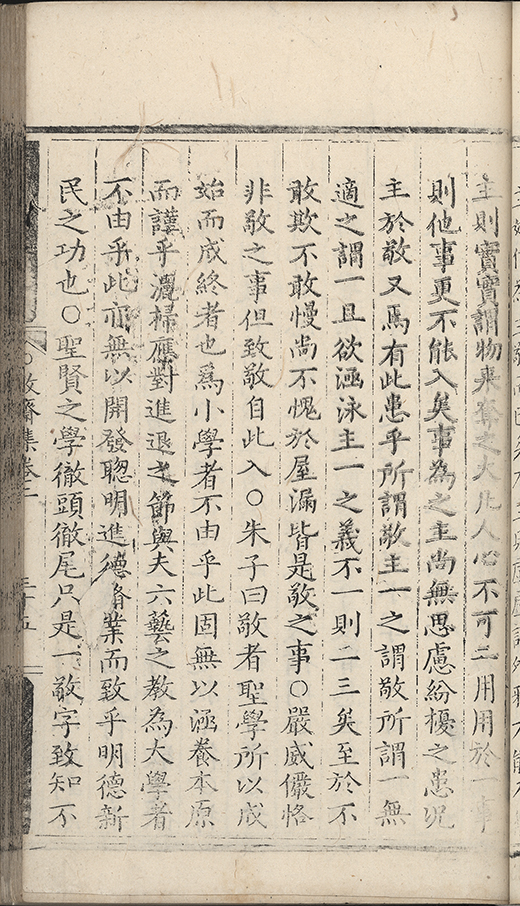 主則實實謂物來奪之大凡人心不可二用用於一事
則他事更不能入矣事為之主尚無思慮紛擾之患況
主於敬又焉有此患乎所謂敬主一之謂敬所謂一無
適之謂一且欲涵泳主一之義不一則二三矣至於不
敢欺不敢慢尚不愧於屋漏皆是敬之事○嚴威儼恪
非敬之事但致敬自此入○朱子曰敬者聖學所以成
始而成終者也爲小學者不由乎此固無以涵養本原
而謹乎灑掃應對進退之節與夫六藝之教為大學者
不由乎此亦無以開發聰明進德脩業而致乎明德新
民之功也○聖賢之學徹頭徹尾只是一敬字致知不
齋集卷